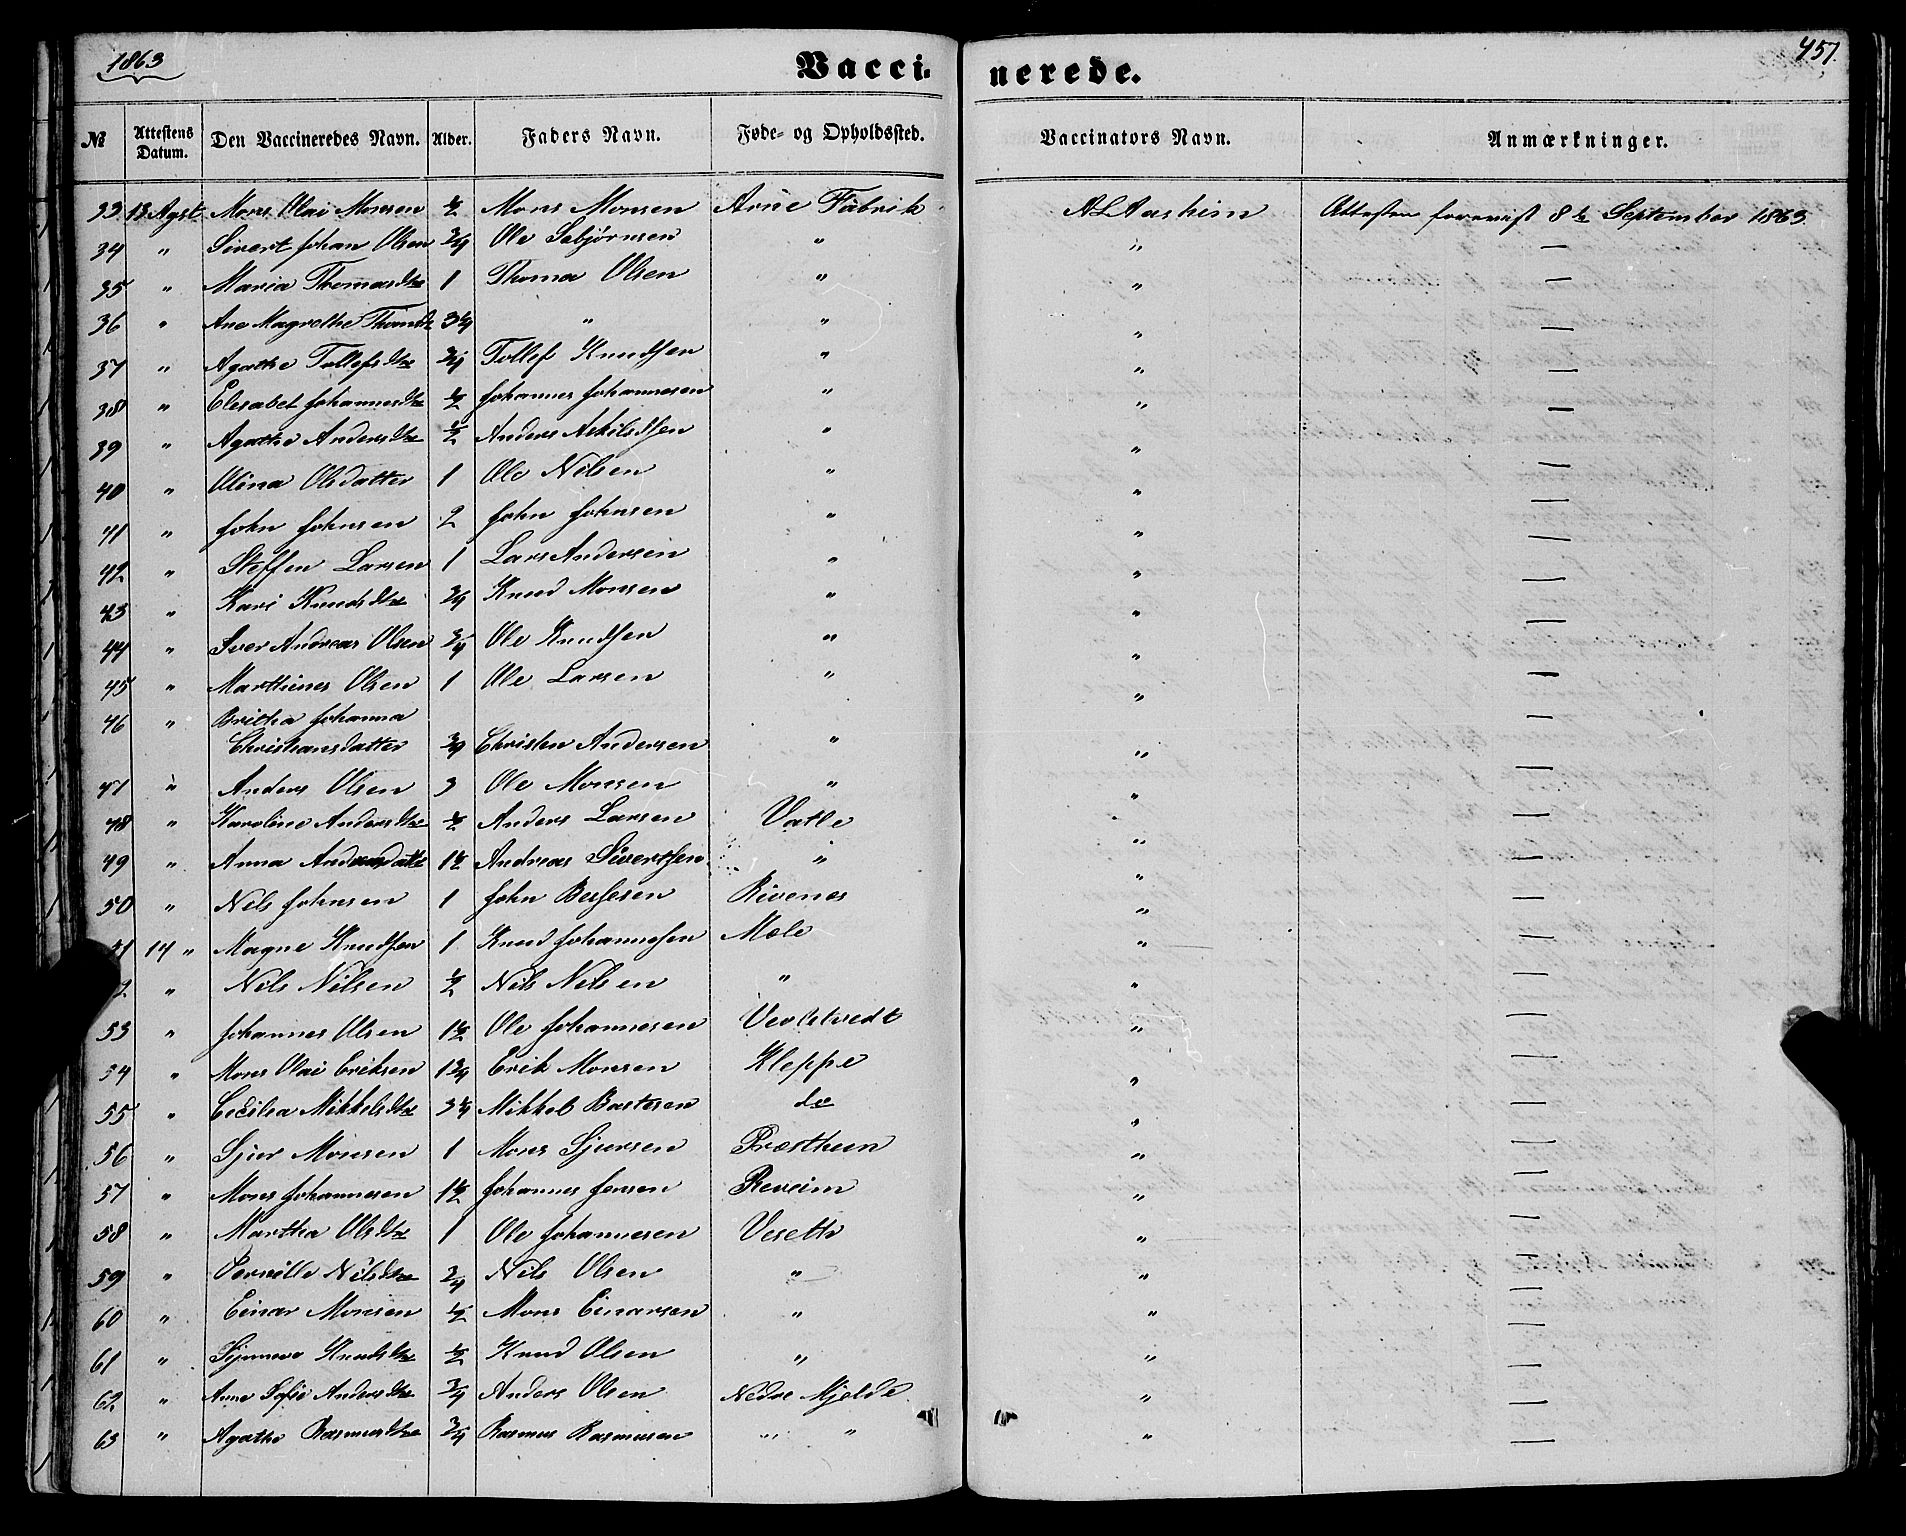 1863
457.
Vacci-nerede.
№ Attestens Datum. Den Vaccineredes Navn. Alder. Faders Navn. Føde- og Opholdssted. Vaccinators Navn. Anmærkninger.
33 13 Agst Mons Olai Monsen ½ Mons Monsen Arne Fabrik ALAasheim Attesten forevist 8de September 1863.
34 " Sivert Johan Olsen 3/4 Ole Sebjørnsen " " —
35 " Maria Thomasdtr 1 Thomas Olsen " " —
36 " Ane Magrethe Thomsdtr 3¼ " " " —
37 " Agathe Tollefsdtr 3/4 Tollef Knudsen " " —
38 " Elesabet Johannesdtr ½ Johannes Johannesen " " —
39 " Agathe Andersdtr ½ Anders Askildsen " " —
40 " Olina Olsdatter 1 Ole Nilsen " " —
41 " John Johnsen 2 John Johnsen " " —
42 " Steffen Larsen 1 Lars Andersen " " —
43 " Kari Knudsdtr 3/4 Knud Monsen " " —
44 " Iver Andreas Olsen 3/4 Ole Knudsen " " —
45 " Marthines Olsen 1 Ole Larsen " " —
46 " Britha Johanna
Christiansdatter 3/4 Christen Andersen " " —
47 " Anders Olsen 3 Ole Monsen " " —
48 " Karoline Andersdtr ½ Anders Larsen Vatle " —
49 " Anna Andreasdattr 1½ Andreas Sivertsen " " —
50 " Nils Johnsen 1 John Børgesen Rivenes " —
51 14 " Magne Knudsen 1 Knud Johannesen Mæle " —
2 " Nils Nilsen ½ Nils Nilsen " " —
53 " Johannes Olsen 1½ Ole Johannesen " —
54 " Mons Olai Eriksen 1¾ Erik Monsen Kleppe " —
55 " Cecilia Mikkelsdtr 3¼ Mikkel Bastesen do " —
56 " Sjur Monsen 1 Mons Sjursen Præsthun " —
57 " Mons Johannesen 1½ Johannes Jensen Reveim " —
58 " Martha Olsdtr 1 Ole Johannesen Veseth " —
59 " Pernille Nilsdtr 3/4 Nils Olsen " " —
60 " Einar Monsen ½ Mons Einarsen " " —
61 " Knudsdtr ½ Knud Olsen " " —
62 " Anne Sofie Andersdtr 3/4 Anders Olsen Nedre Mjelde " —
63 " Agathe Rasmusdtr 3/4 Rasmus Rasmusen " " " —